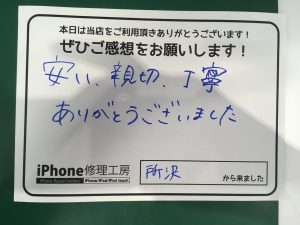 本日は当店をご利用頂きありがとうございます！
ぜひご感想をお願いします！
安い、親切、丁寧
ありがとうございました
iPhone修理工房
iPhone Repair Factory iPhone/iPad/iPod touch
所沢
から来ました